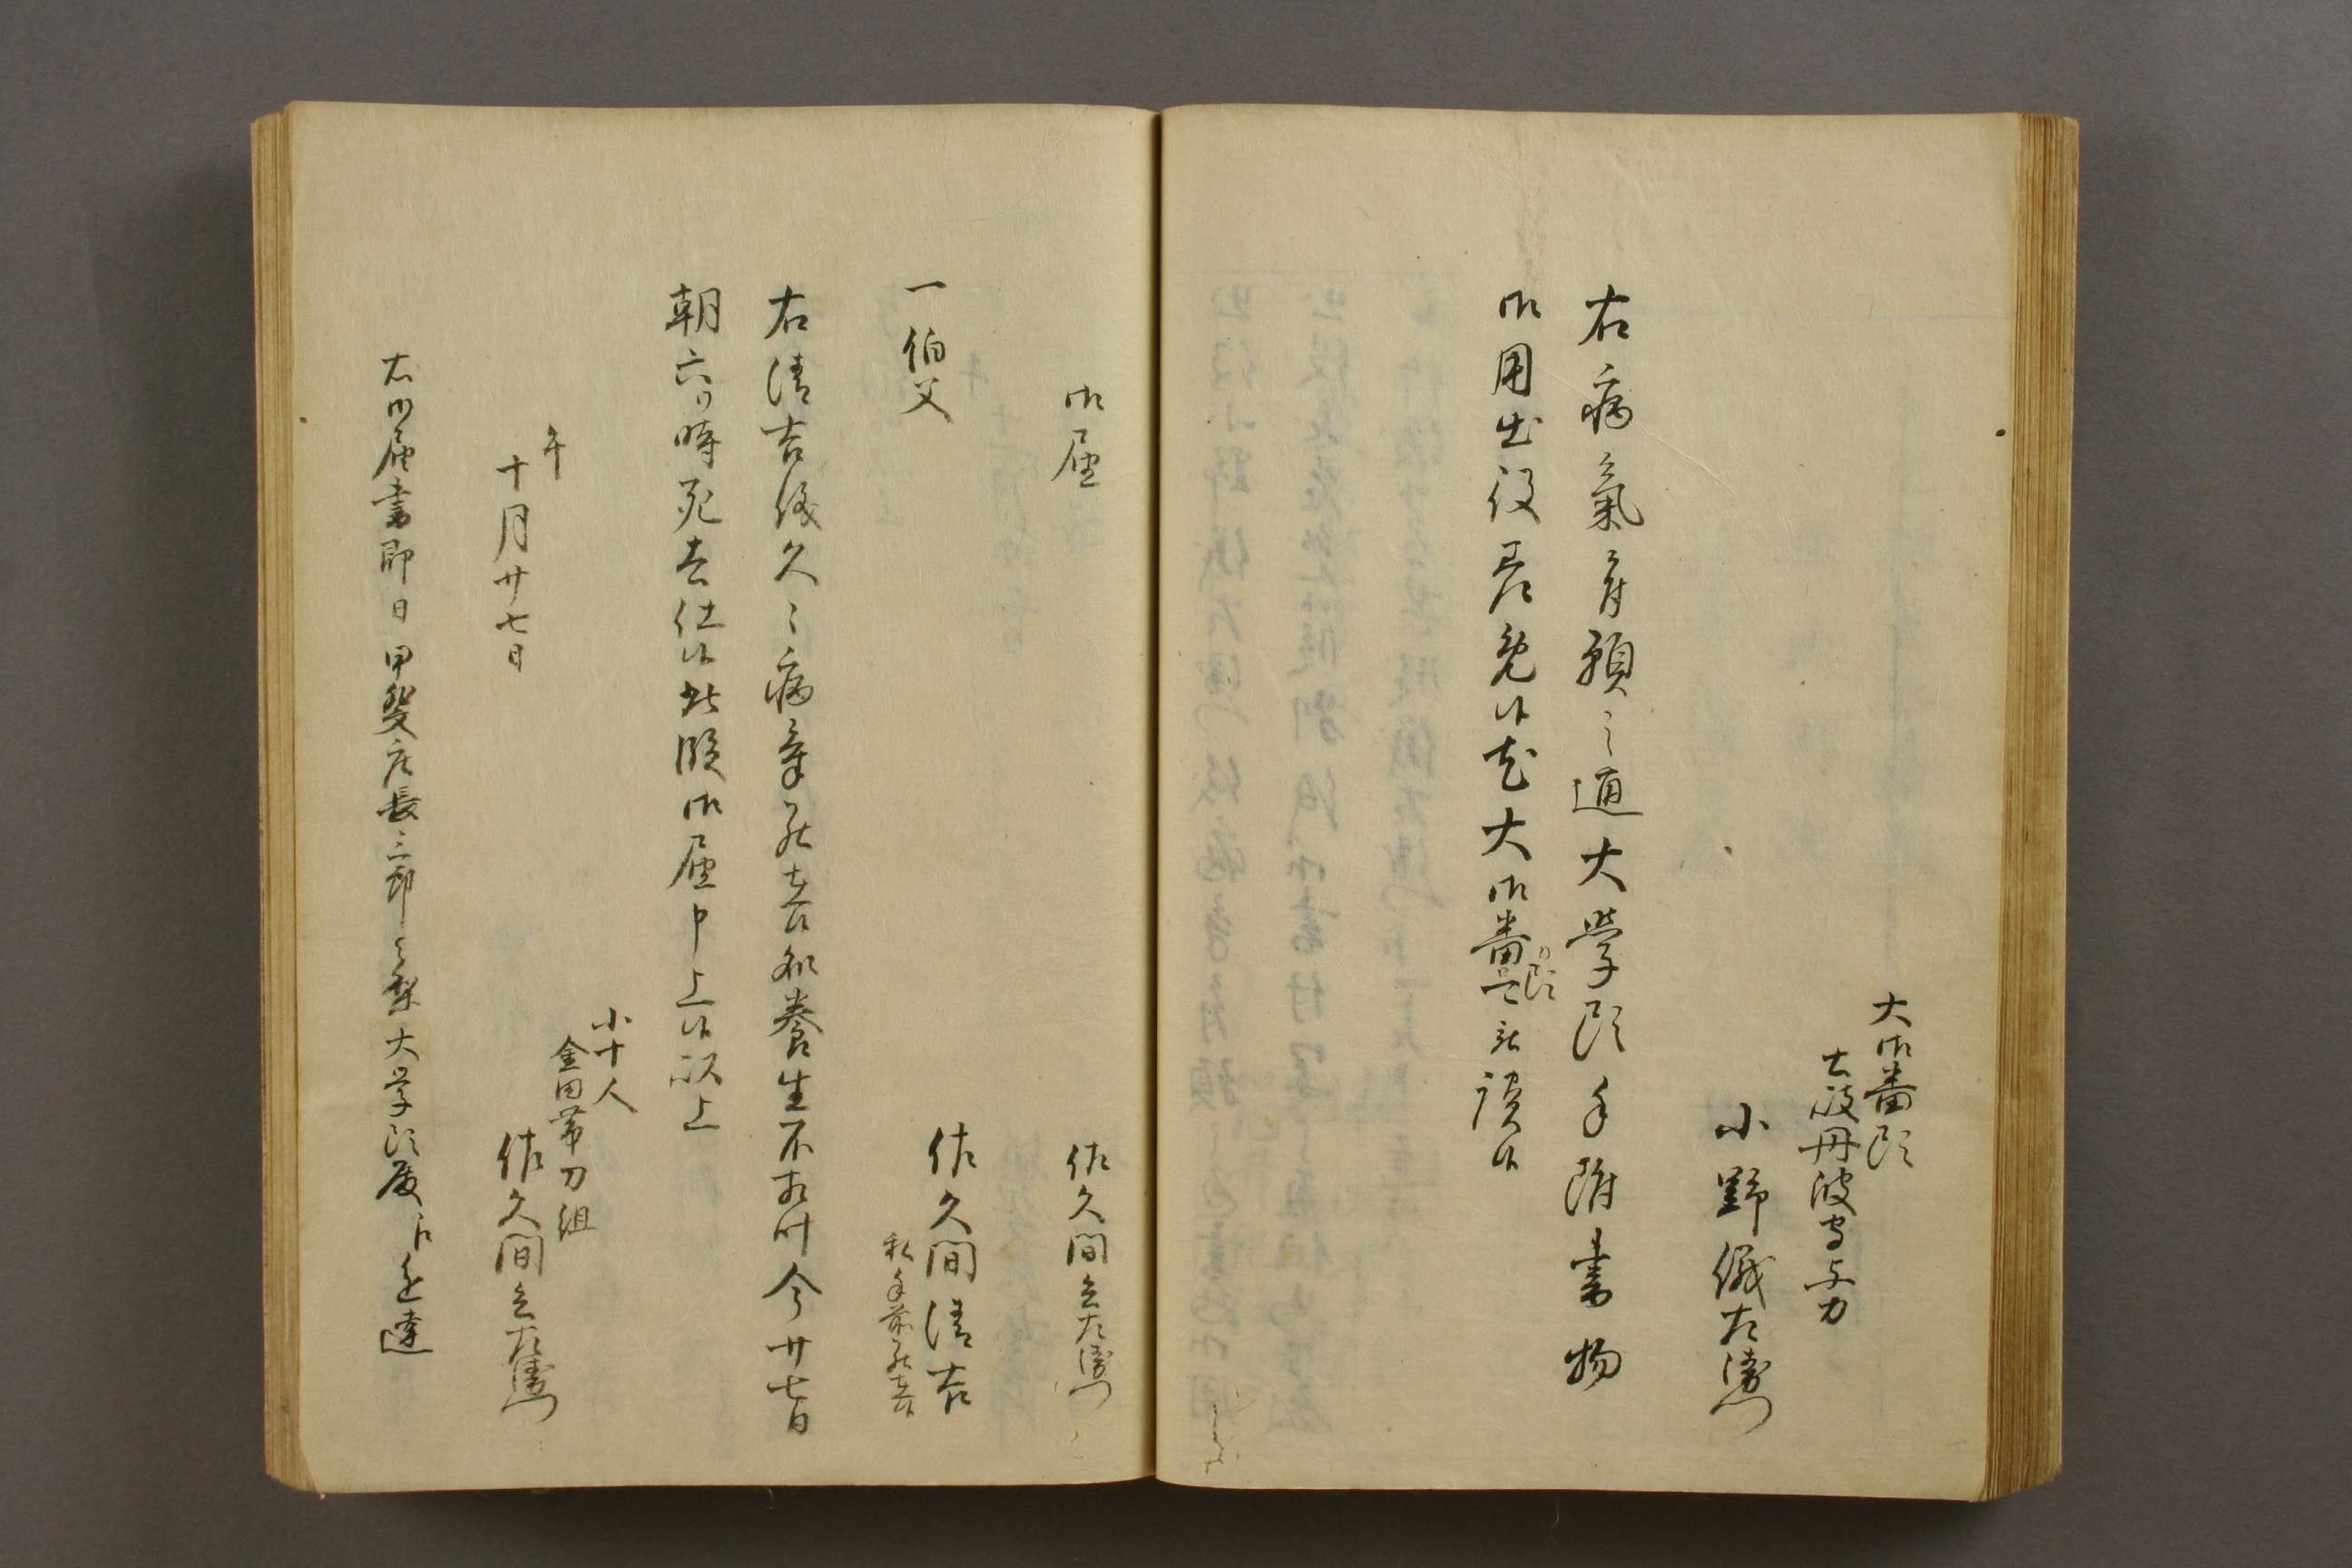 大御番頭
土岐丹波守与力
小野儀左衛門
右病氣ニ付願之通大學頭手附書物
御用出役差免候尤大御番頭
江も談候
御届
佐久間 左衛門
一伯父
佐久間清吉
私手前ニ罷在候
右清吉儀久々病氣ニ罷在候処養生不相叶今廿七日
朝六ツ時死去仕候此段御届申上候以上
午
十月廿七日
小十人
金田帯刀組
佐久間 左衛門
右御届書即日甲斐庄長三郎 大学頭殿 進達